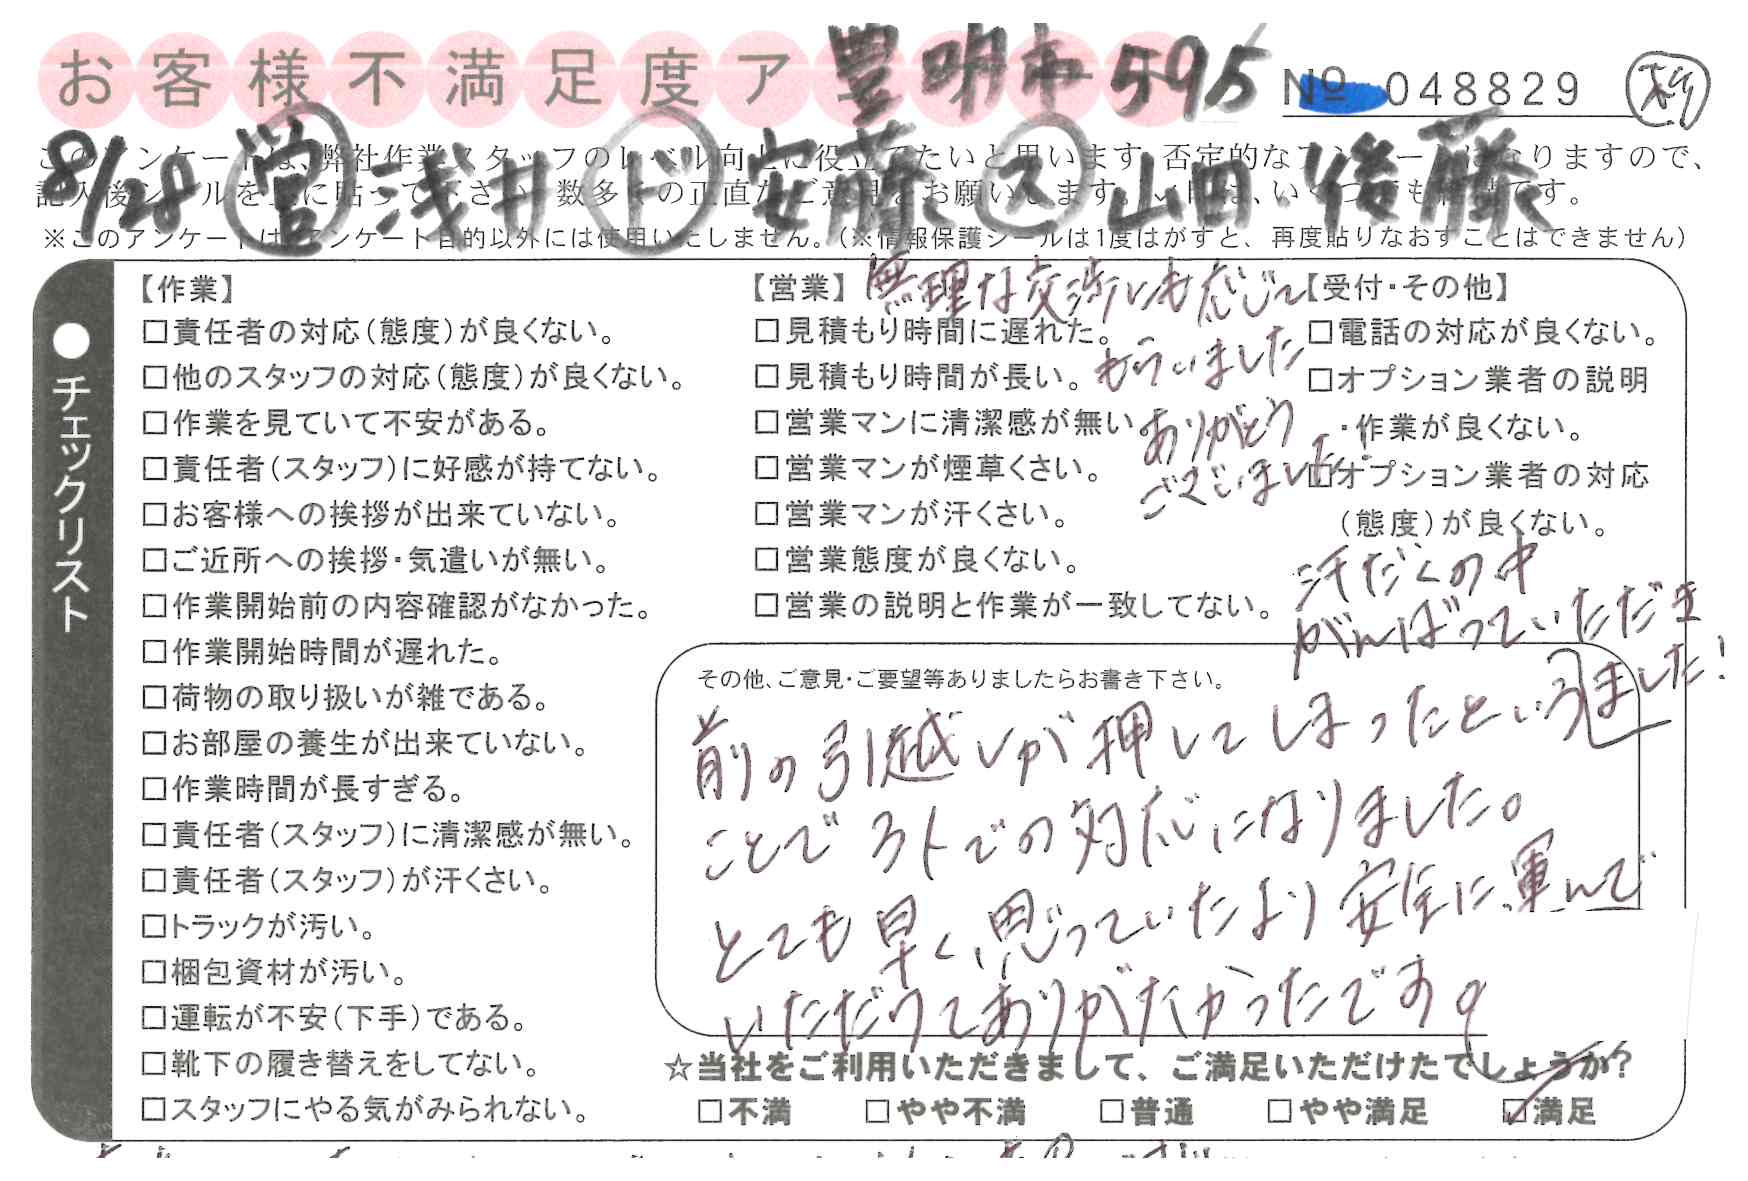 お客様不満足度ア
豊明市 595
№ 048829
8/28 営 浅井 ド 安藤 ス 山田・後藤
このアンケートは、弊社作業スタッフのレベル向上に役立てたいと思います。否定的なアンケートになりますので、
記入後シールを上に貼って下さい。数多くの正直なご意見をお願いします。
※このアンケートは、アンケート目的以外には使用いたしません。（※情報保護シールは1度はがすと、再度貼りなおすことはできません）
●チェックリスト
【作業】
□責任者の対応（態度）が良くない。
□他のスタッフの対応（態度）が良くない。
□作業を見ていて不安がある。
□責任者（スタッフ）に好感が持てない。
□お客様への挨拶が出来ていない。
□ご近所への挨拶・気遣いが無い。
□作業開始前の内容確認がなかった。
□作業開始時間が遅れた。
□荷物の取り扱いが雑である。
□お部屋の養生が出来ていない。
□作業時間が長すぎる。
□責任者（スタッフ）に清潔感が無い。
□責任者（スタッフ）が汗くさい。
□トラックが汚い。
□梱包資材が汚い。
□運転が不安（下手）である。
□靴下の履き替えをしてない。
□スタッフにやる気がみられない。
【営業】
□見積もり時間に遅れた。
□見積もり時間が長い。
□営業マンに清潔感が無い。
□営業マンが煙草くさい。
□営業マンが汗くさい。
□営業態度が良くない。
□営業の説明と作業が一致してない。
無理な交渉にも応じて
もらいました
ありがとう
ございました！
【受付・その他】
□電話の対応が良くない。
□オプション業者の説明
・作業が良くない。
□オプション業者の対応
（態度）が良くない。
汗だくの中
がんばっていただき
ました！
その他、ご意見・ご要望等ありましたらお書き下さい。
前の引越しが押してしまったという
ことで3人での対応になりました。
とても早く、思っていたより安全に運んで
いただけてありがたかったです。
☆当社をご利用いただきまして、ご満足いただけたでしょうか?
□不満 □やや不満 □普通 □やや満足 ☑満足